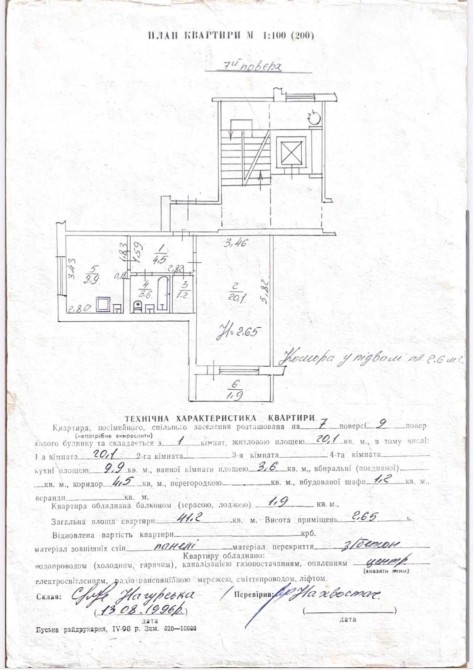 ПЛАН КВАРТИРИ М 1:100 (200)
7й поверх
3.46
1
4.5
1.83
1.59
3.43
5
9.9
2.82
4
3.6
3
1.2
2
20.1
5.82
2.80
H=2.65
Комора у підвалі пл 2.6 м²
6
1.9
ТЕХНІЧНА ХАРАКТЕРИСТИКА КВАРТИРИ
Квартира, посімейного, спільного заселення розташована на 7 поверсі 9 повер
(непотрібне викреслити)
хового будинку та складається з 1 кімнат, житловою площею 20,1 кв. м., в тому числі:
1-а кімната 20.1 2-га кімната 3-я кімната 4-та кімната
кухні площею 9,9 кв. м., ванної кімнати площею 3,6 кв. м., вбиральні (поєднаної)
кв. м., коридор 4,5 кв. м., перегородкою кв. м., вбудованої шафи 1,2 кв. м.,
веранди кв. м.
Квартира обладнана балконом (терасою, лоджею) 1,9 кв. м.,
Загальна площа квартири 41.2 кв. м. Висота приміщень 2.65 м.
Відновлена вартість квартири крб.
матеріал зовнішніх стін панелі матеріал перекриття з/бетон
Квартиру обладнано:
водопроводом (холодним, гарячим), каналізацією газопостачанням, опаленням центр.
(вказати яким)
електроосвітленням, радіотрансляційною мережею, сміттєпроводом, ліфтом
Склав: Нагурська Перевірив:
13.08.1996р. ( )
дата дата
IV-96 р. Зам.